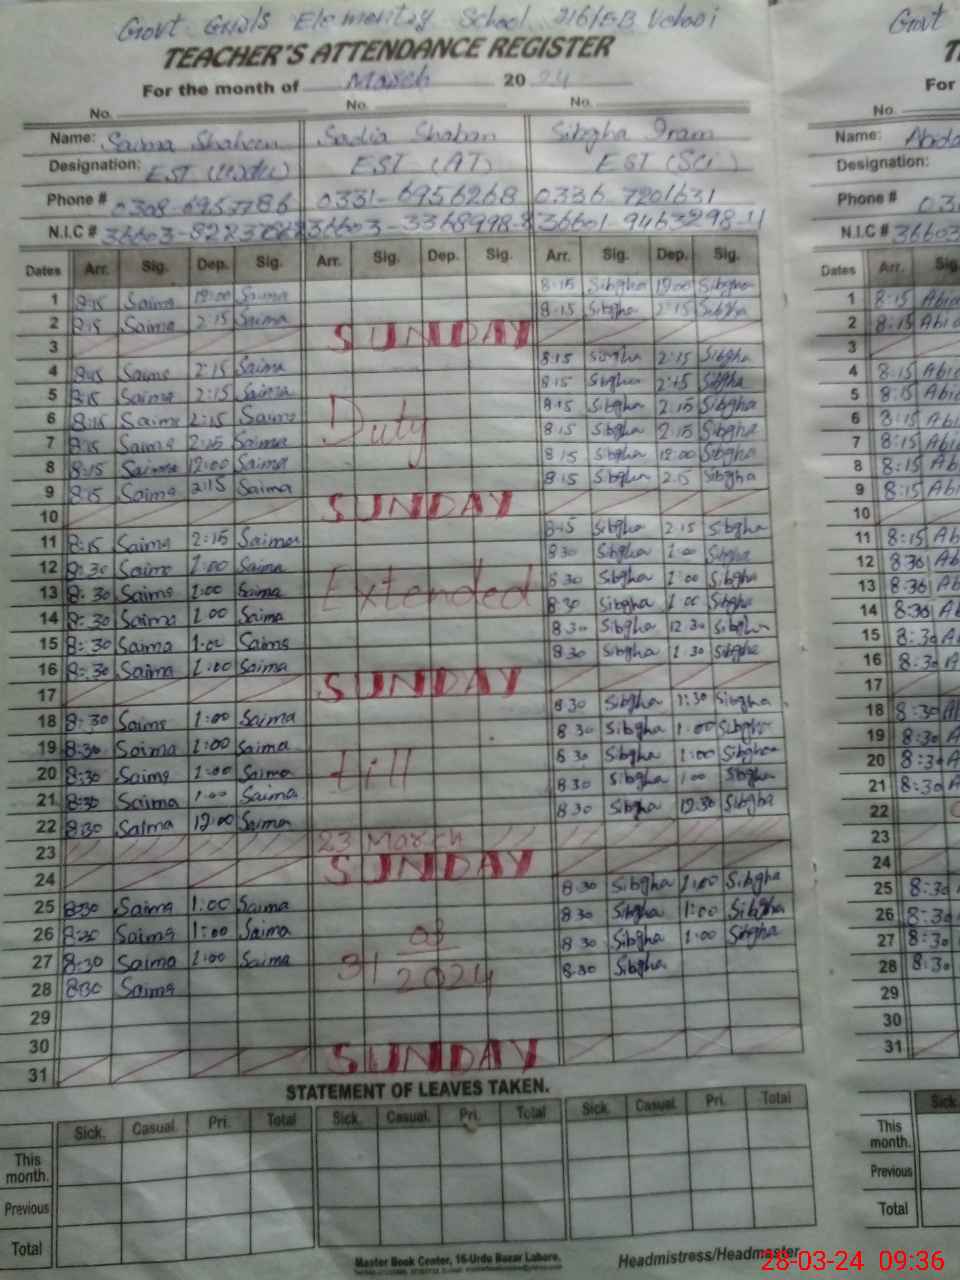 Govt Girls Elementry School 216/EB Vehari
TEACHER'S ATTENDANCE REGISTER
For the month of March 2024
No. No. No.
Name: Saima Shaheen Sadia Shaban Sibgha Iram
Designation: EST (Urdu) EST (AT) EST (Sci)
Phone # 0331-6956268 0336 7201631
N.I.C #
Dates Arr. Sig. Dep. Sig. Arr. Sig. Dep. Sig. Arr. Sig. Dep. Sig.
1 8:15 Saima 12:00 Saima 8:15 Sibgha 12:00 Sibgha
2 8:15 Saima 2:15 Saima 8:15 Sibgha 2:15 Sibgha
3 SUNDAY
4 8:15 Saima 2:15 Saima 8:15 Sibgha 2:15 Sibgha
5 8:15 Saima 2:15 Saima 8:15 Sibgha 2:15 Sibgha
6 8:15 Saima 2:15 Saima Duty 8:15 Sibgha 2:15 Sibgha
7 8:15 Saima 2:15 Saima 8:15 Sibgha 2:15 Sibgha
8 8:15 Saima 12:00 Saima 8:15 Sibgha 12:00 Sibgha
9 8:15 Saima 2:15 Saima 8:15 Sibgha 2:15 Sibgha
10 SUNDAY
11 8:15 Saima 2:15 Saima 8:15 Sibgha 2:15 Sibgha
12 8:30 Saima 1:00 Saima 8:30 Sibgha 1:00 Sibgha
13 8:30 Saima 1:00 Saima Extended 8:30 Sibgha 1:00 Sibgha
14 8:30 Saima 1:00 Saima 8:30 Sibgha 1:00 Sibgha
15 8:30 Saima 1:00 Saima 8:30 Sibgha 12:30 Sibgha
16 8:30 Saima 1:00 Saima 8:30 Sibgha 1:30 Sibgha
17 SUNDAY
18 8:30 Saima 1:00 Saima 8:30 Sibgha 1:30 Sibgha
19 8:30 Saima 1:00 Saima 8:30 Sibgha 1:00 Sibgha
20 8:30 Saima 1:00 Saima till 8:30 Sibgha 1:00 Sibgha
21 8:30 Saima 1:00 Saima 8:30 Sibgha 1:00 Sibgha
22 8:30 Saima 12:00 Saima 8:30 Sibgha 12:30 Sibgha
23 23 March
24 SUNDAY
25 8:30 Saima 1:00 Saima 8:30 Sibgha 1:00 Sibgha
26 8:30 Saima 1:00 Saima 8:30 Sibgha 1:00 Sibgha
27 8:30 Saima 1:00 Saima 31 03 2024 8:30 Sibgha 1:00 Sibgha
28 8:30 Saima 8:30 Sibgha
29
30
31 SUNDAY
STATEMENT OF LEAVES TAKEN.
Sick. Casual. Pri. Total Sick. Casual. Pri. Total Sick. Casual. Pri. Total
This month.
Previous
Total
Master Book Center, 16-Urdu Bazar Lahore.
Headmistress/Headmaster
Govt
For
No.
Name:
Designation:
Phone # 03
N.I.C # 36603
Dates Arr. Sig
1 8:15 Abi
2 8:15 Abi
3
4 8:15 Abi
5 8:15 Abi
6 8:15 Abi
7 8:15 Abi
8 8:15 Abi
9 8:15 Abi
10
11 8:15 Ab
12 8:30 Ab
13 8:30 Ab
14 8:30 Ab
15 8:30 A
16 8:30 A
17
18 8:30 A
19 8:30 A
20 8:30 A
21 8:30 A
22
23
24
25 8:30
26 8:30
27 8:30
28 8:30
29
30
31
Sick.
This month.
Previous
Total
28-03-24 09:36